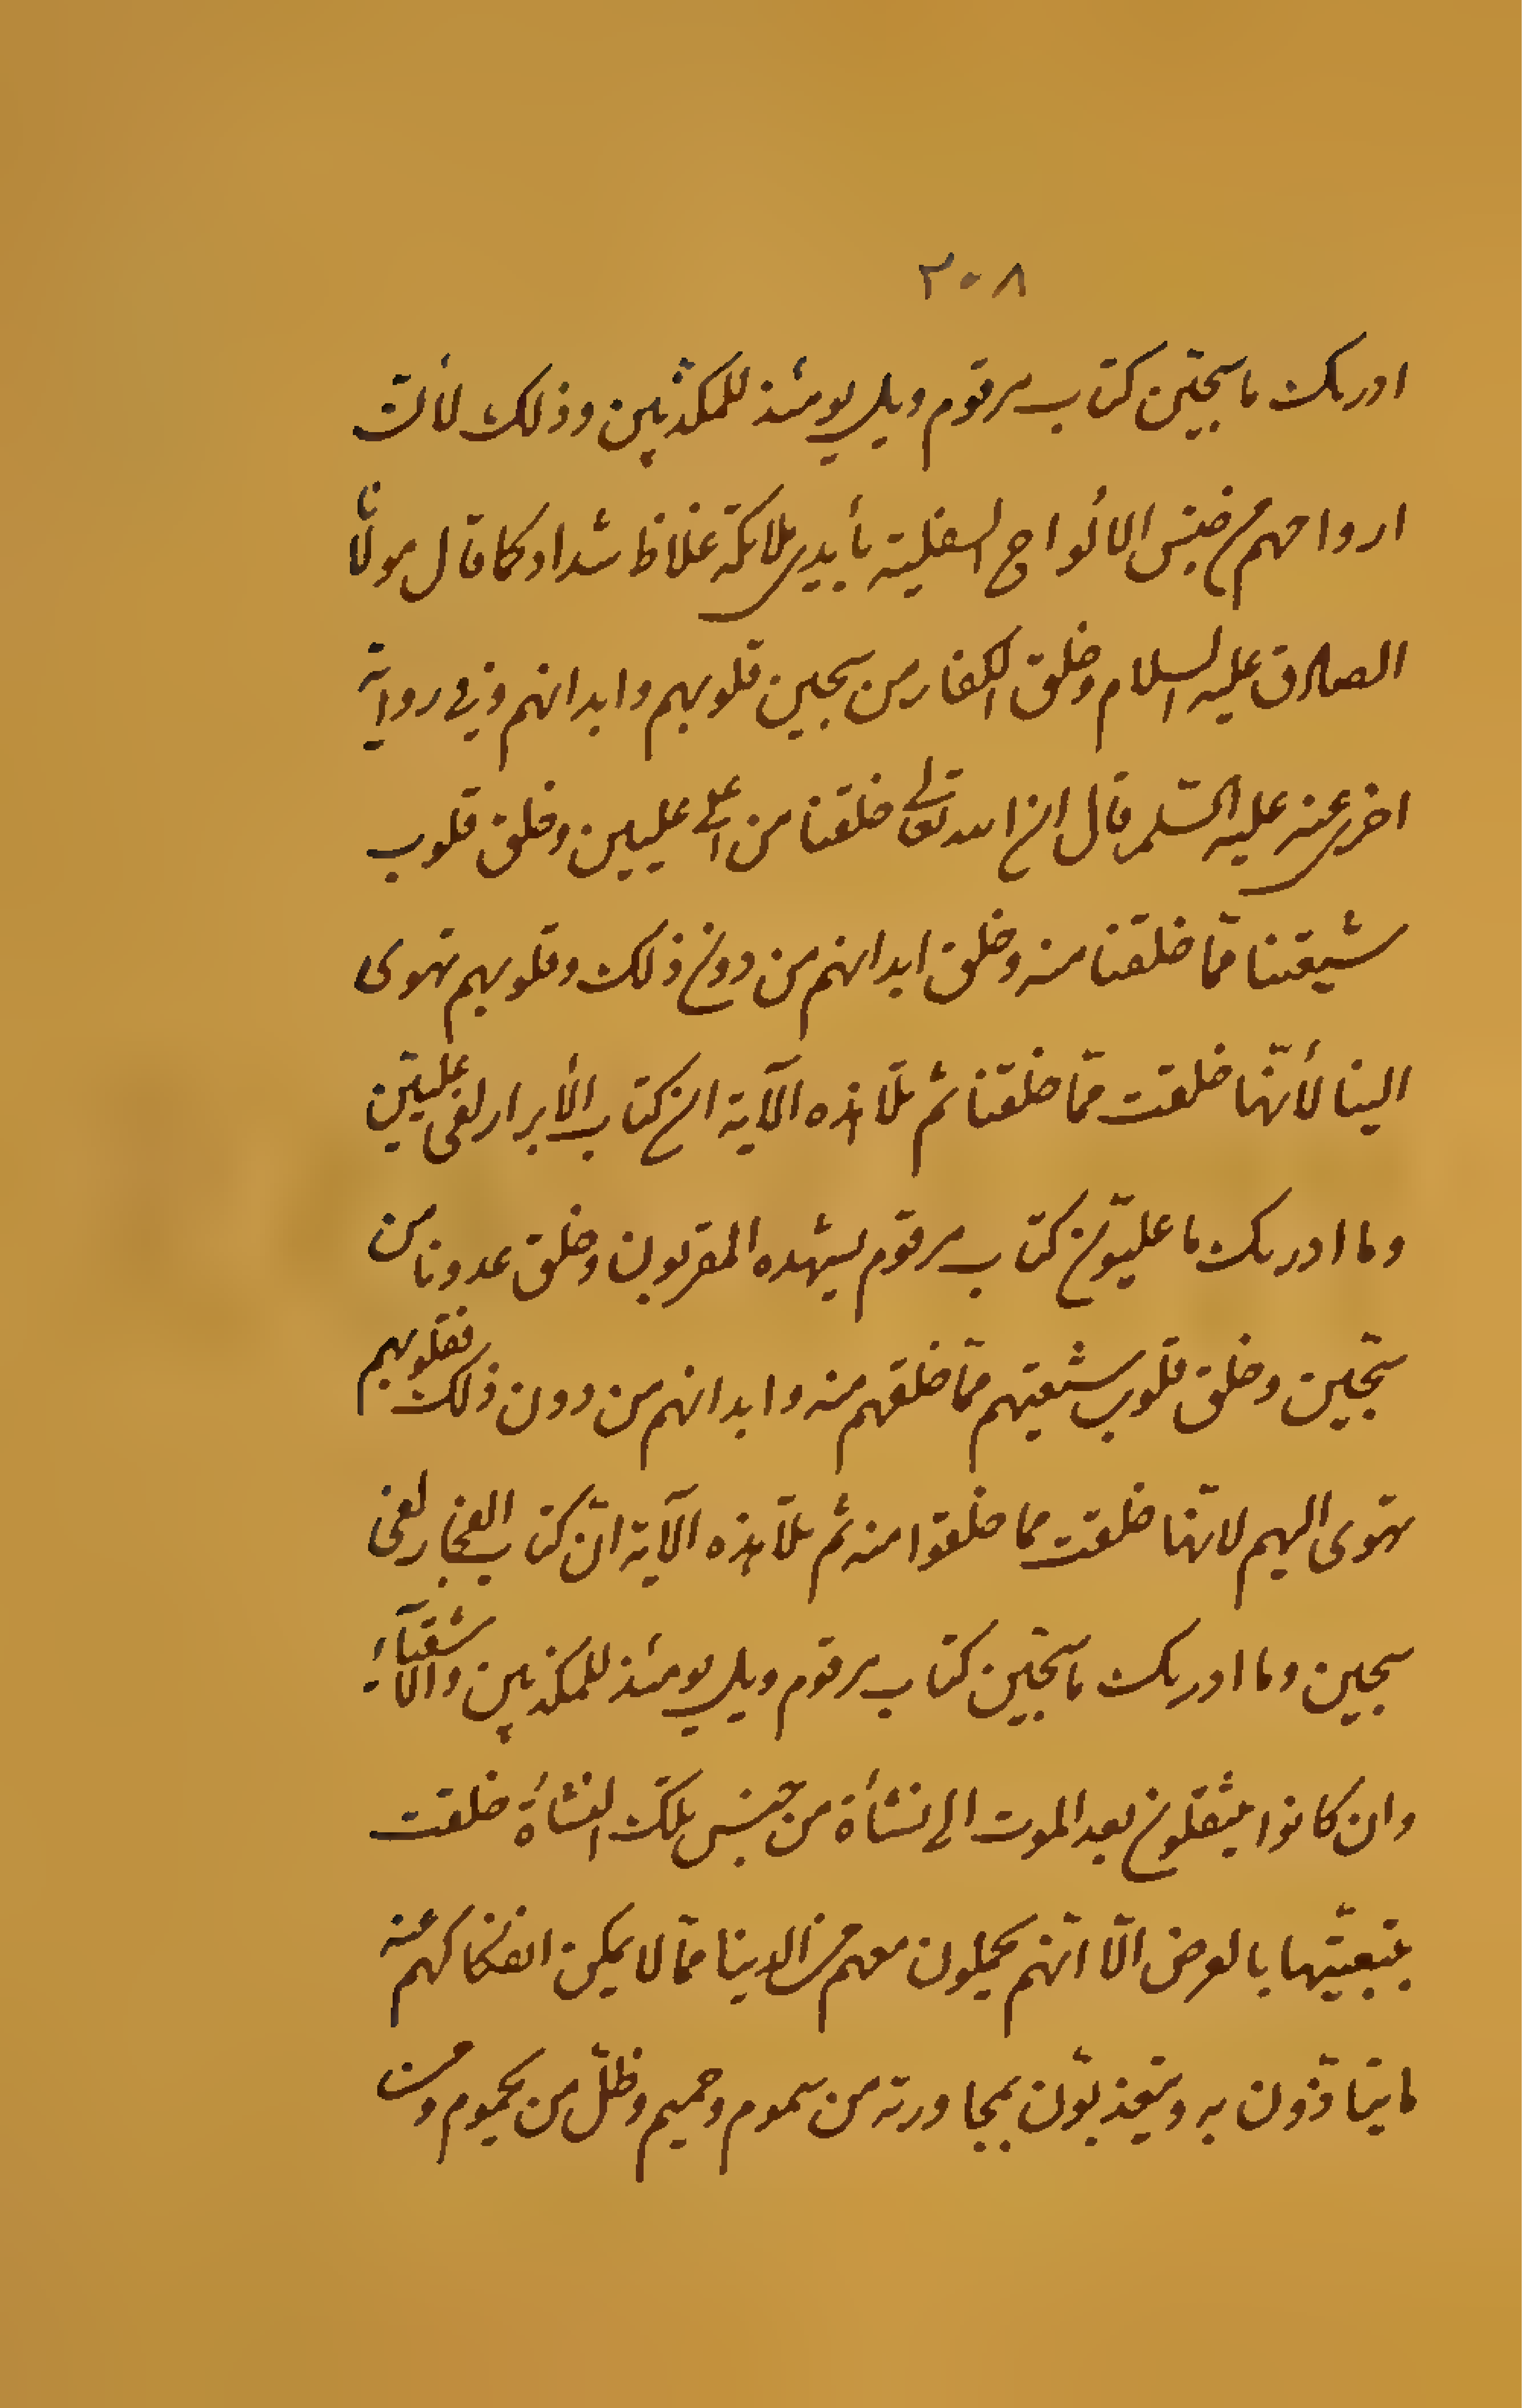 ٣٠٨
ادريك ما سجّين كتاب مرقوم ويل يومئذ للمكذّبين وذلك لأنّ
ارواحهم من جنس الألواح السفلية بأيدى ملائكة غلاظ شداد كما قال مولانا
الصادق عليه السلام وخلق الكفار من سجين قلوبهم وابدانهم وفى رواية
اخرى عنه عليه السّلم قال ان الله تعالى خلقنا من اعلى عليين وخلق قلوب
شيعتنا ممّا خلقنا منه وخلق ابدانهم من دون ذلك وقلوبهم تهوى
الينا لأنّها خلقت ممّا خلقنا ثم تلا هذه الآية ان كتاب الأبرار لفى عليّين
وما ادريك ما عليّون كتاب مرقوم يشهده المقربون وخلق عدونا من
سجّين وخلق قلوب شيعتهم ممّا خلقهم منه وابدانهم من دون ذلك فقلوبهم
تهوى اليهم لانّها خلقت مما خلقوا منه ثم تلا هذه الآية انّ كتاب الفجار لفى
سجين وما ادريك ما سجّين كتاب مرقوم ويل يومئذ للمكذبين والأشقياء
وان كانوا ينتقلون بعد الموت الى نشأة من جنس تلك النشأة خلقت
بتبعيّتها بالعرض الّا انّهم يحملون معهم من الدنيا ممّا لا يمكن انفكاكهم عنه
ما يتأذّون به ويتعذّبون بمجاورته من سموم وحميم وظلّ من يحموم ومن